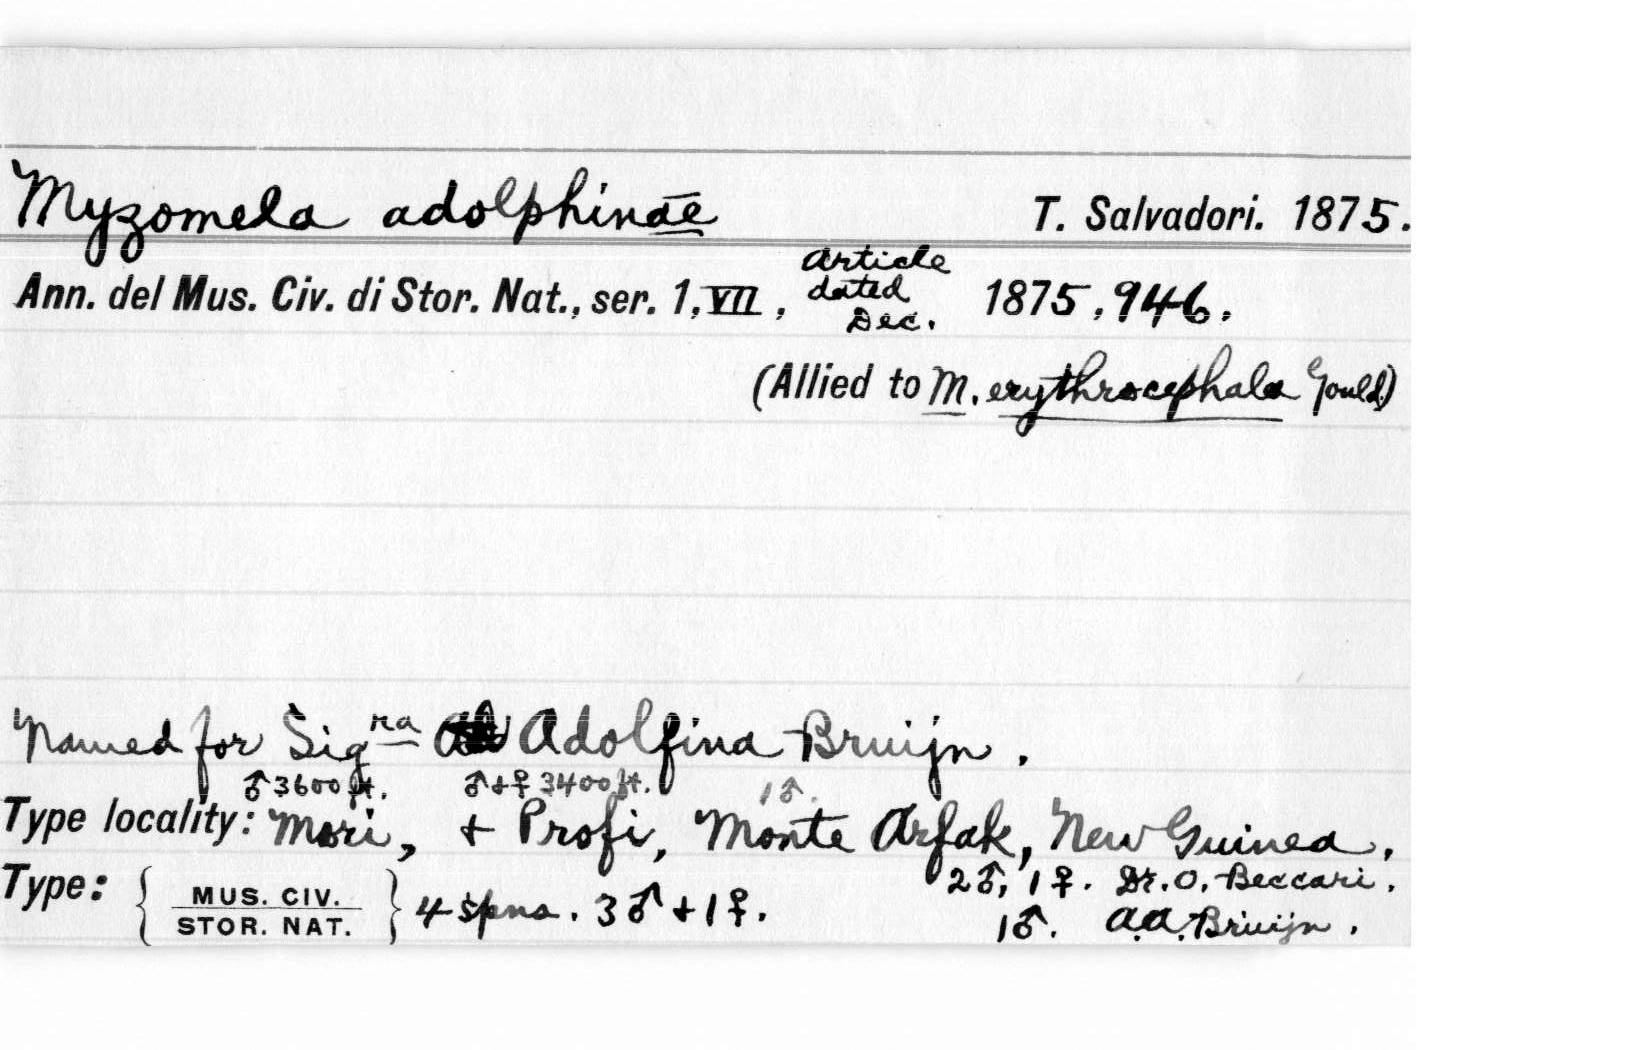 Myzomela adolphinae T. Salvadori. 1875.
Ann. del Mus. Civ. di Stor. Nat., ser. 1, VII, Article dated Dec. 1875, 946.
(Allied to M. erythrocephala Gould.)
Named for Sigra Adolfina Bruijn.
♂ 3600 ft. ♂+♀ 3400 ft. 1♂.
Type locality: Mori, + Profi, Monte Arfak, New Guinea.
2♂, 1♀. Dr. O. Beccari.
Type: { MUS. CIV. STOR. NAT. } 4 spns. 3♂ + 1♀.
1♂. A.A. Bruijn.